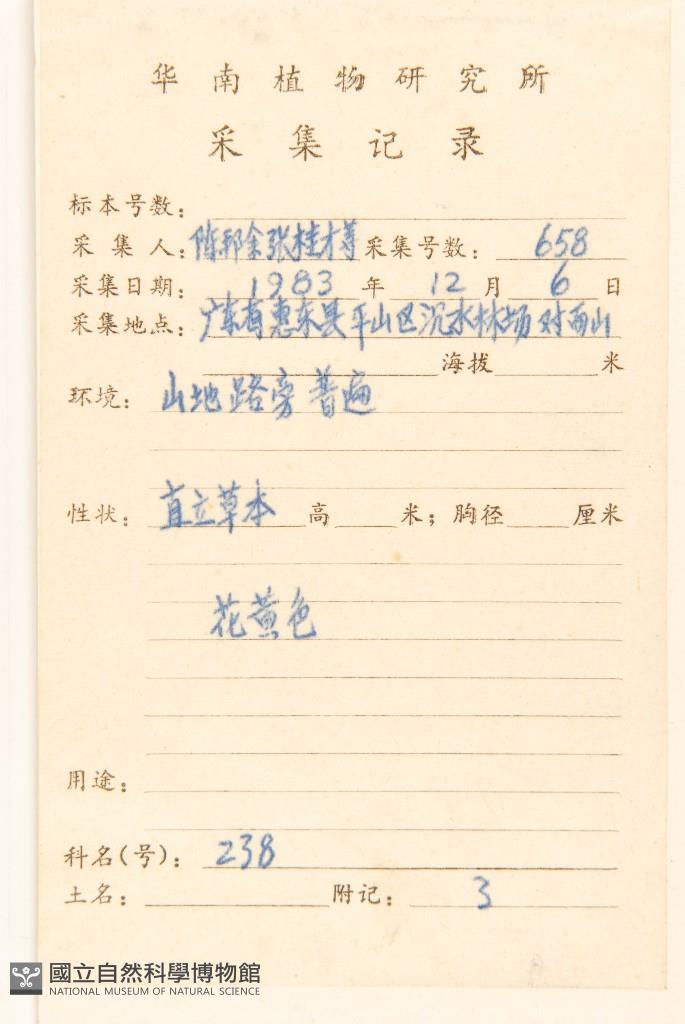 华南植物研究所
采集记录
标本号数:
采集人: 陈邦余张桂才等 采集号数: 658
采集日期: 1983 年 12 月 6 日
采集地点: 广东省惠东县平山区沉水林场对面山
海拔 米
环境: 山地路旁 普遍
性状: 直立草本 高 米; 胸径 厘米
花黄色
用途:
科名(号): 238
土名: 附记: 3
國立自然科學博物館
NATIONAL MUSEUM OF NATURAL SCIENCE